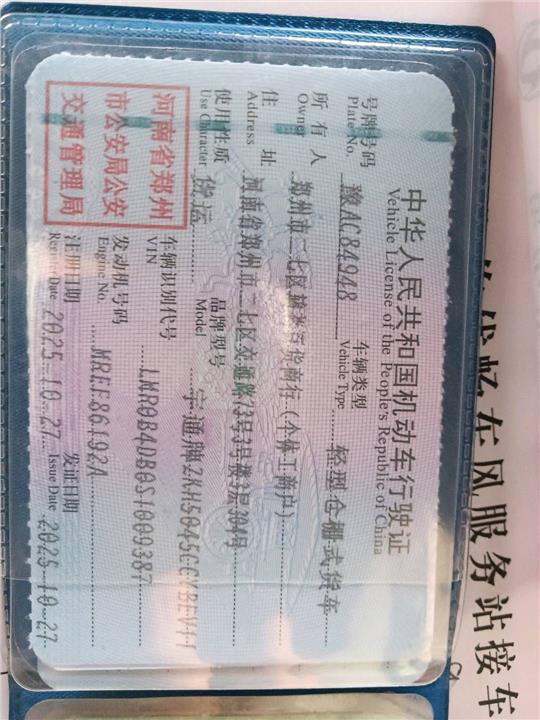 中华人民共和国机动车行驶证
Vehicle License of the People's Republic of China
号牌号码 豫AC84948 车辆类型 轻型仓栅式货车
Plate No. Vehicle Type
所有人 郑州市二七区 百货商行（个体工商户）
Owner
住址 河南省郑州市二七区交通路73号3号楼3层304号
Address
使用性质 货运 品牌型号 宇通牌ZKH5045CCYBEV11
Use Character Model
河南省郑州
市公安局公安
交通管理局
车辆识别代号 LMR0B4DB0S1009387
VIN
发动机号码 MREE86192A
Engine No.
注册日期 2025-10-27 发证日期 2025-10-27
Register Date Issue Date
车风服务站接车